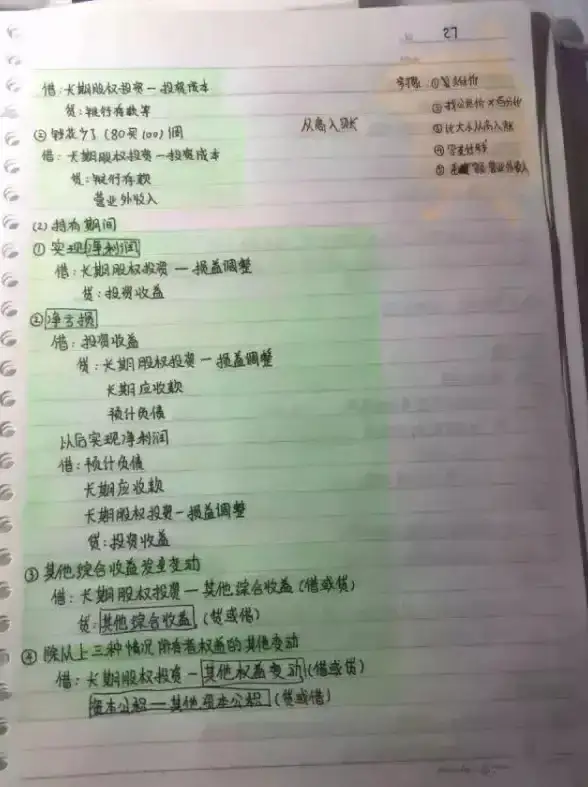 27
借：长期股权投资—投资成本
贷：银行存款等
② 钱花少了（80买100）国
借：长期股权投资—投资成本
贷：银行存款
营业外收入
从高入账
步骤：①算付价
②找公允价×百分比
③比大小从高入账
④
⑤ 营业外收入
(2) 持有期间
① 实现净利润
借：长期股权投资—损益调整
贷：投资收益
②净亏损
借：投资收益
贷：长期股权投资—损益调整
长期应收款
预计负债
以后实现净利润
借：预计负债
长期应收款
长期股权投资—损益调整
贷：投资收益
③ 其他综合收益发生变动
借：长期股权投资—其他综合收益（借或贷）
贷：其他综合收益（贷或借）
④ 除以上三种情况所有者权益的其他变动
借：长期股权投资—其他权益变动（借或贷）
资本公积—其他资本公积（贷或借）